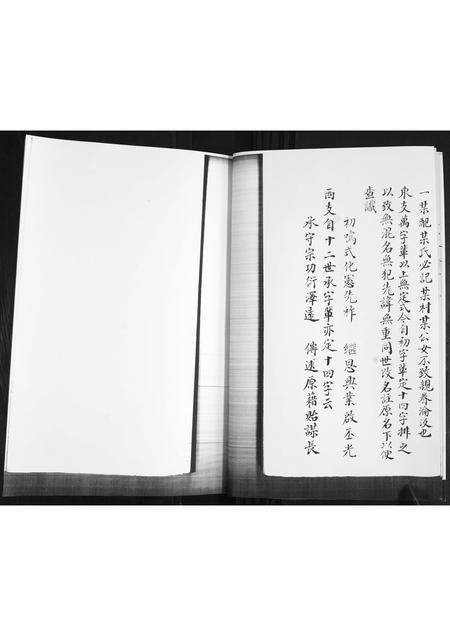 一某配某氏必記某村某公女不致親眷淪没也
東支萬字輩以上無定式今自初字輩定十四字排之
以致無混名無犯先諱無重同世改名註原名下以便
查識
初鳴式化憲先祚 繼思興業啟丕光
西支自十二世承字輩亦定十四字云
承守宗功衍澤遠 傳述原籍貽謀長